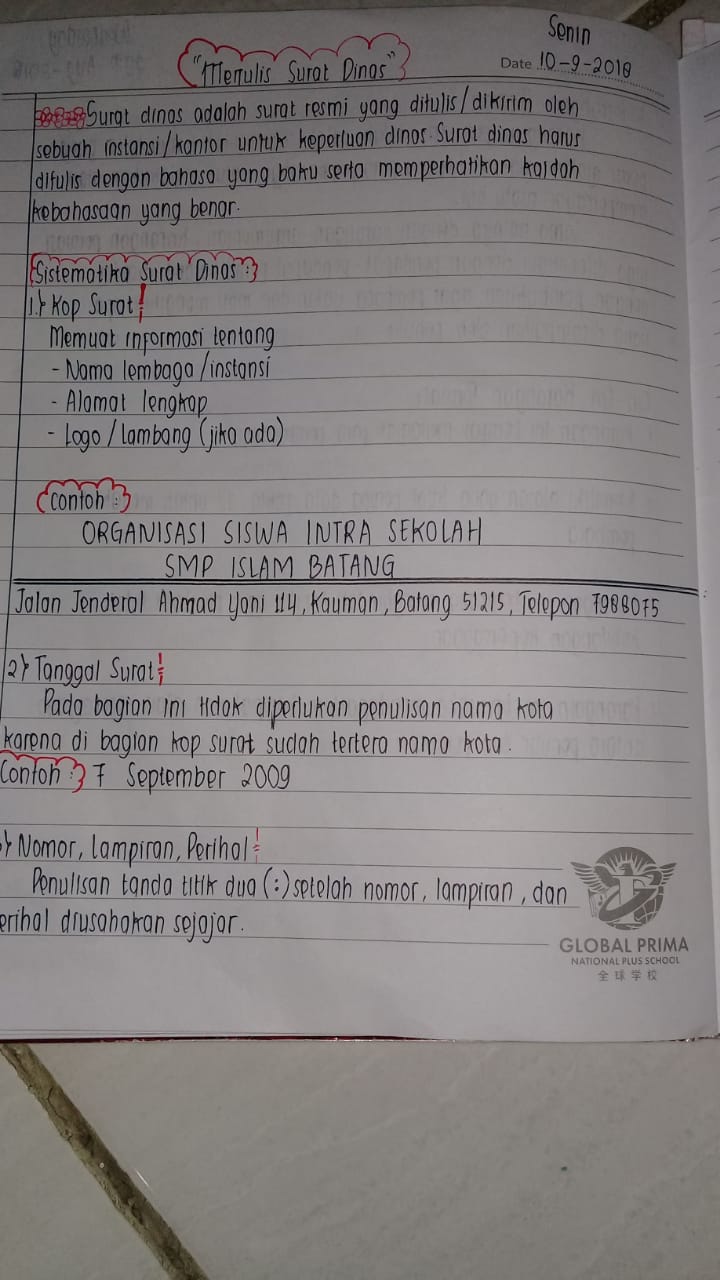 Senin
"Menulis Surat Dinas"
Date 10-9-2018
Surat dinas adalah surat resmi yang ditulis/dikirim oleh
sebuah instansi/kantor untuk keperluan dinas. Surat dinas harus
ditulis dengan bahasa yang baku serta memperhatikan kaidah
kebahasaan yang benar.
Sistematika Surat Dinas :
1.) Kop Surat !
Memuat informasi tentang
- Nama lembaga /instansi
- Alamat lengkap
- Logo / lambang (jika ada)
Contoh :
ORGANISASI SISWA INTRA SEKOLAH
SMP ISLAM BATANG
Jalan Jenderal Ahmad Yani 114, Kauman, Batang 51215, Telepon 7988075
2) Tanggal Surat !
Pada bagian ini tidak diperlukan penulisan nama kota
karena di bagian kop surat sudah tertera nama kota.
Contoh : 7 September 2009
) Nomor, Lampiran, Perihal !
Penulisan tanda titik dua (:) setelah nomor, lampiran, dan
erihal diusahakan sejajar.
GLOBAL PRIMA
NATIONAL PLUS SCHOOL
全球学校